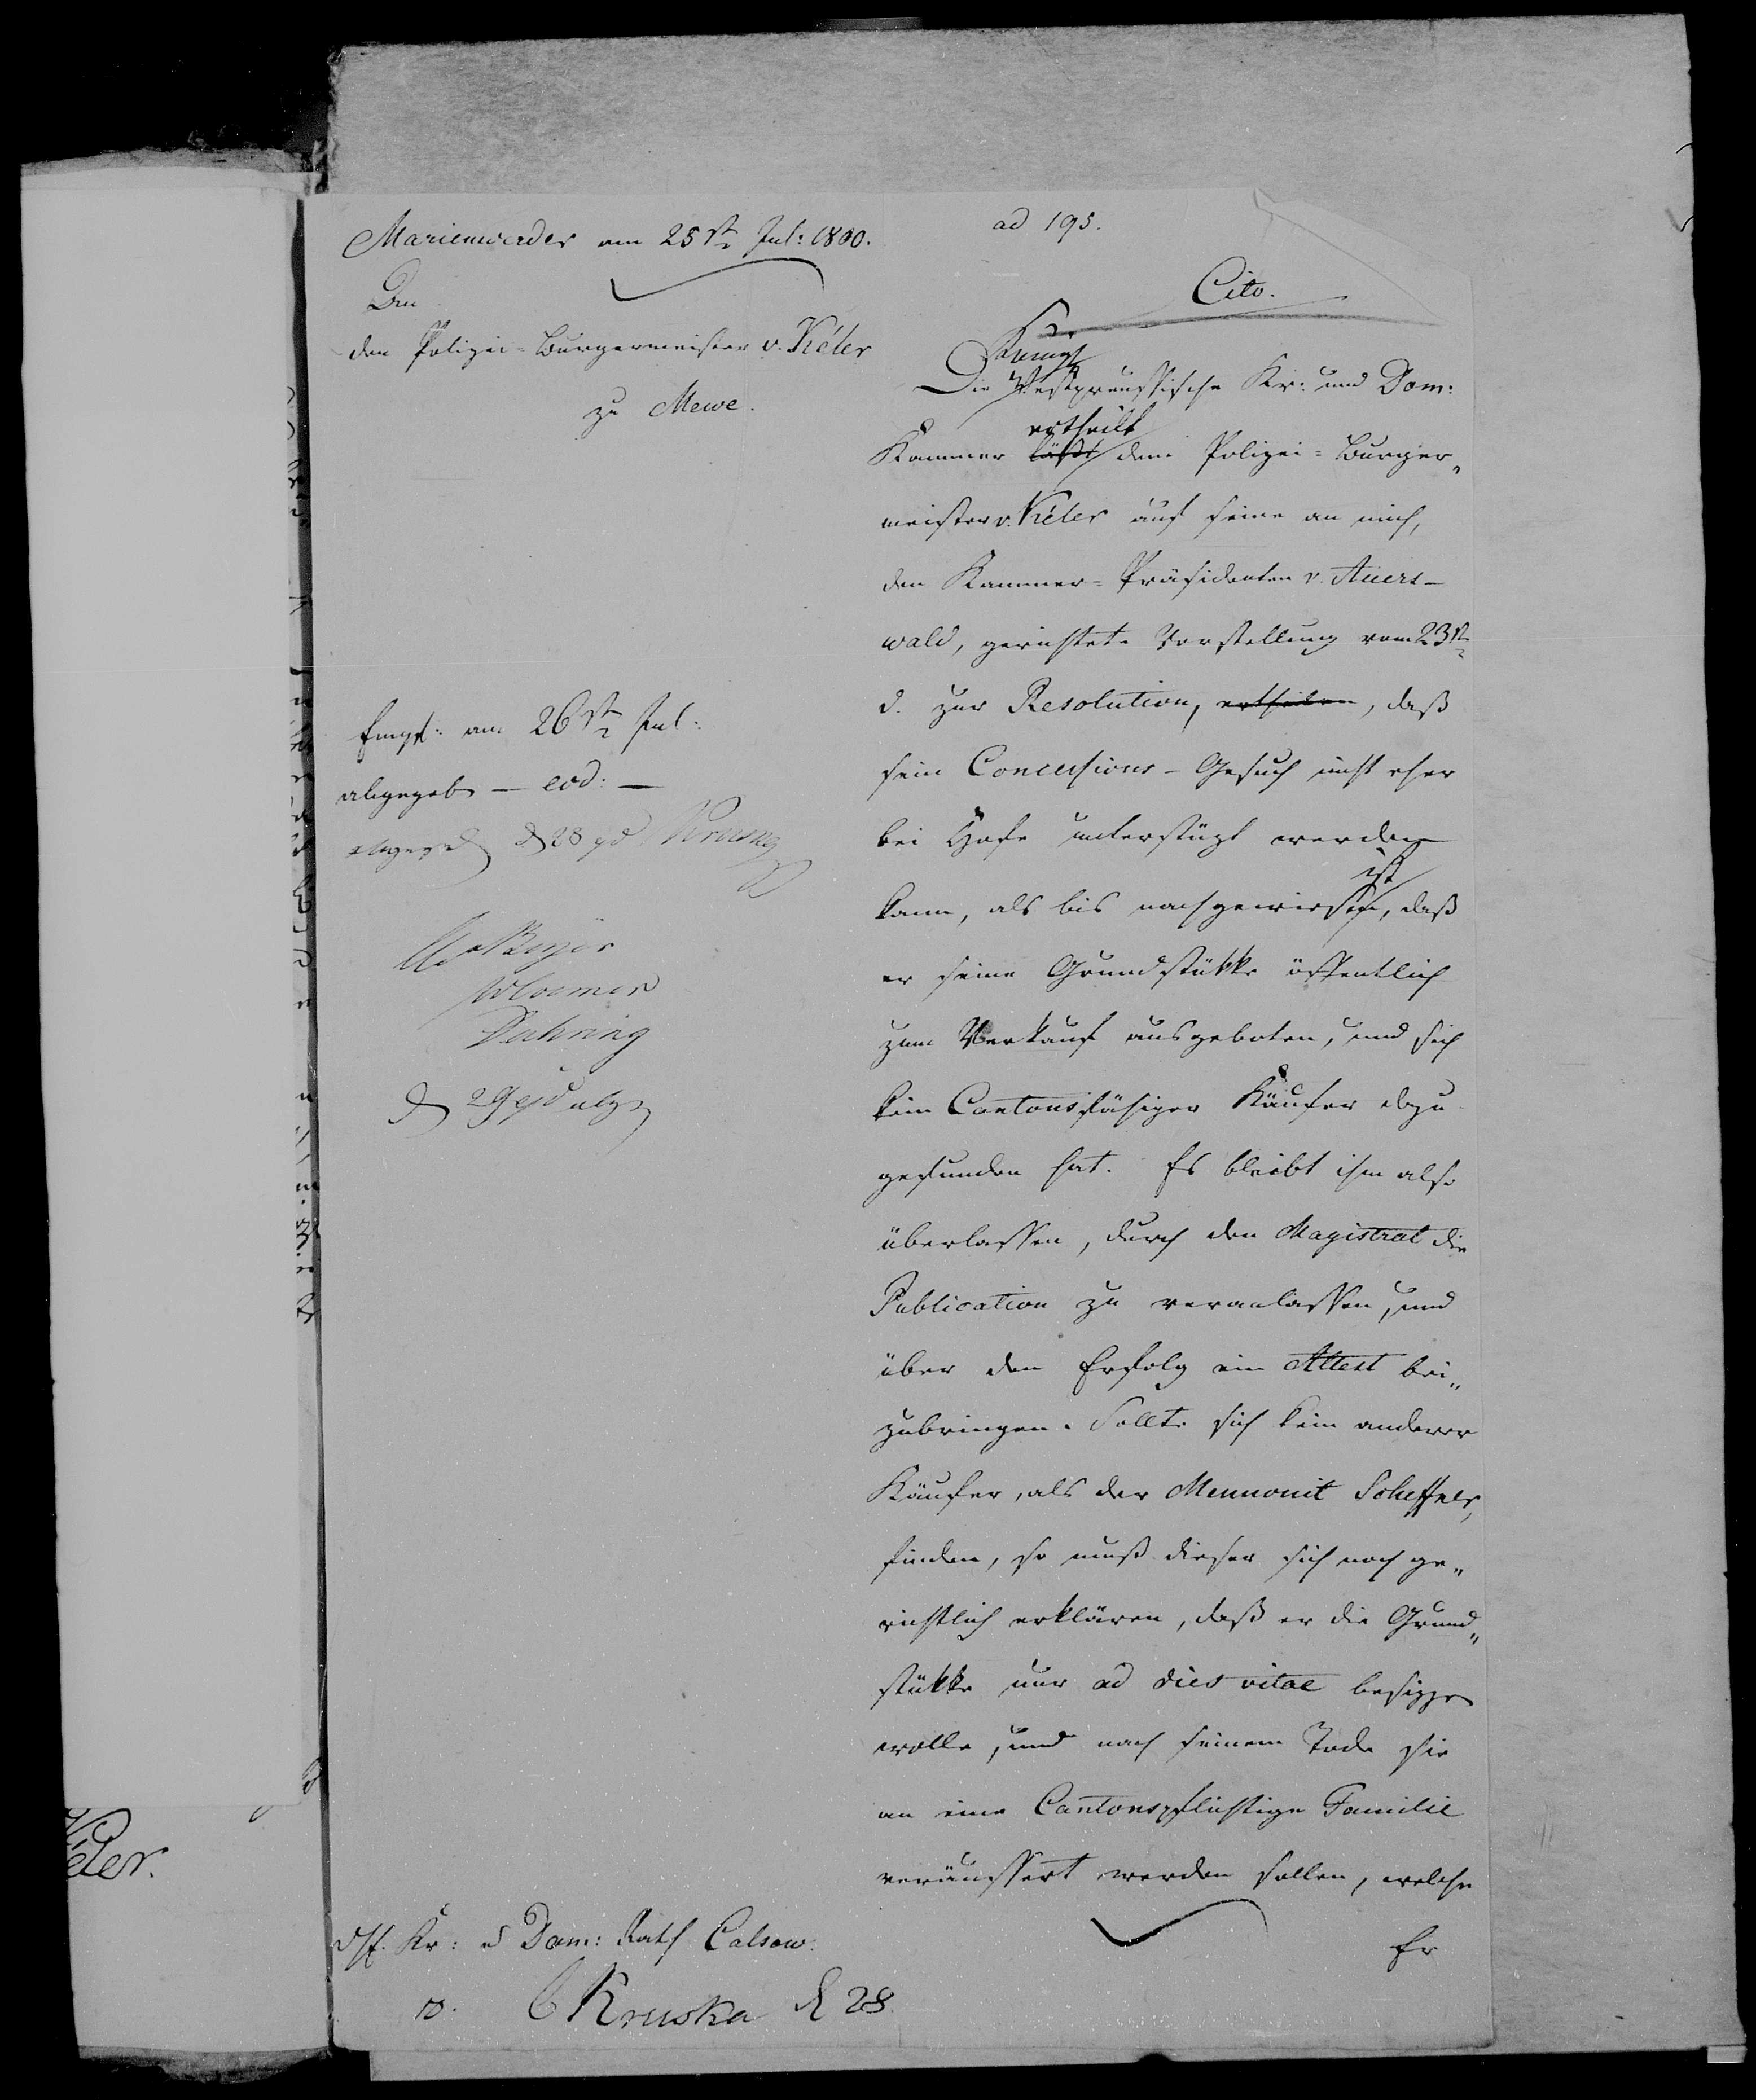 Marienwerder am 25st Jul: 1800.
ad 195.
Cito.
An
den Polizei-Burgermeister v. Kéler
zu Mewe.
Die Westpreussische Kr: und Dom:
ertheilt
Kammer läßt dem Polizei-Burger„
meister v. Kéler auf seine an mich,
den Kammer-Präsidenten v. Auers-
wald, gerichtete Vorstellung vom 23st
d. zur Resolution, ertheilen, daß
sein Concessions-Gesuch nicht eher
bei Hofe unterstüzt werden
ist
kann, als bis nachgewiesen, daß
er seine Grundstükke öffentlich
zum Verkauf ausgeboten, und sich
kein Cantonsfähiger Käufer dazu
gefunden hat. Es bleibt ihm also
überlassen, durch den Magistrat die
Publication zu veranlassen, und
über den Erfolg ein Attest bei„
zubringen. Sollte sich kein anderer
Käufer, als der Mennonit Scheffler,
finden, so muß dieser sich noch ge„
richtlich erklären, daß er die Grund„
stükke nur ad dies vitae besizzen
wolle, und nach seinem Tode sie
an eine Cantonspflichtige Familie
veräussert werden sollen, welche
Er
Empf: am 26st Jul:
abgegeb — eod: —
d 28
Beyer
Kr: u Dom: Rath Calsow.
Kruska d 28.